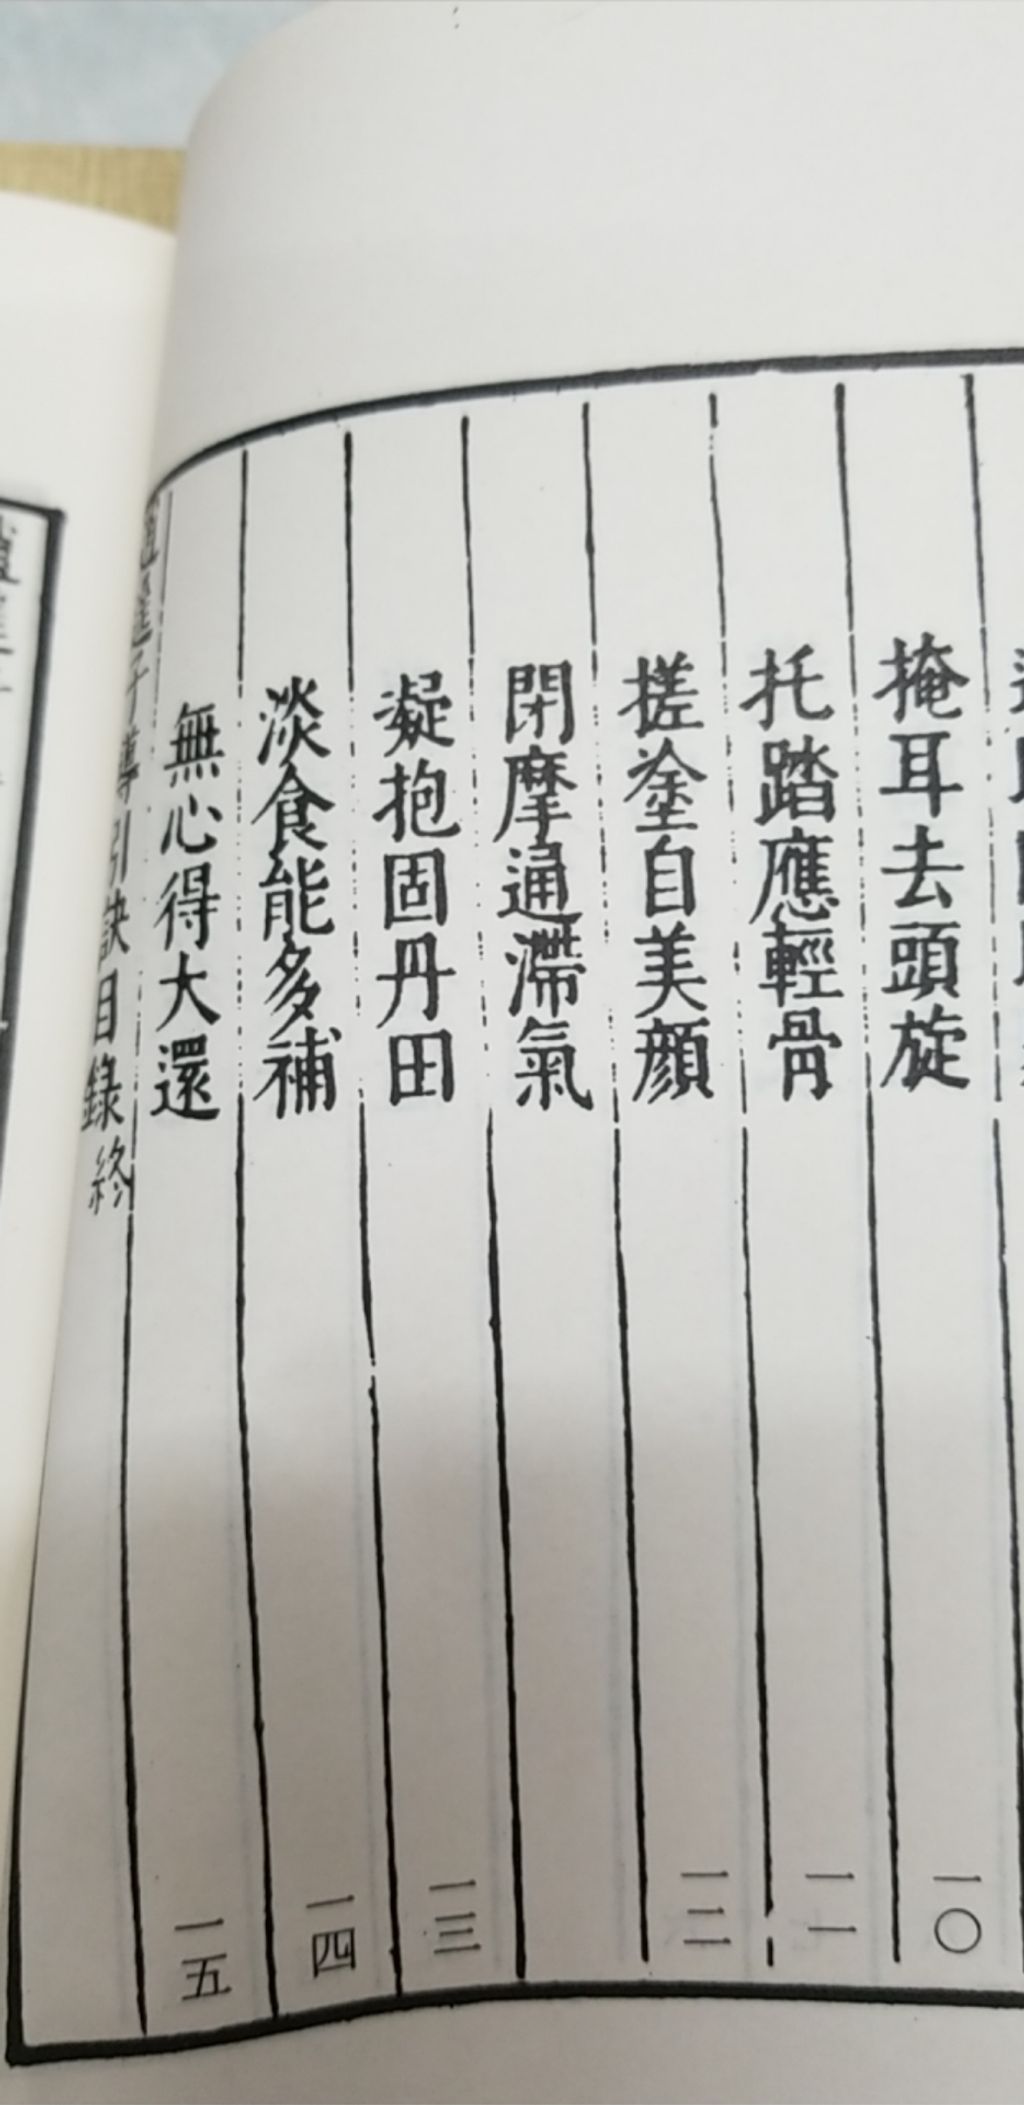 掩耳去頭旋 一〇
托踏應輕骨 一一
搓塗自美顏 一二
閉摩通滯氣
凝抱固丹田 一三
淡食能多補 一四
無心得大還 一五
子導引訣目錄終